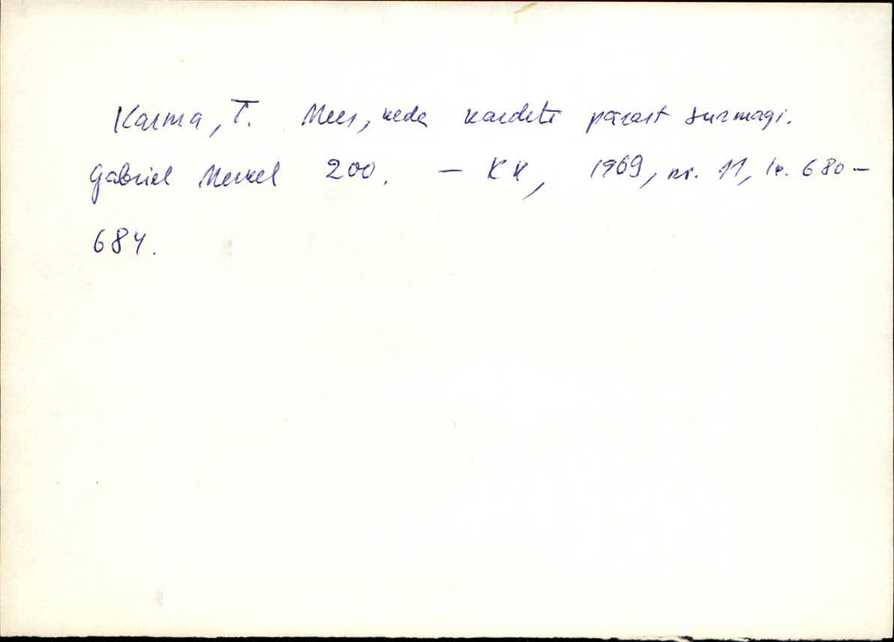 Karma, T. Mees, keda kardeti pärast surmagi.
Gabriel Merkel 200. – KK, 1969, nr. 11, lk. 680–
684.